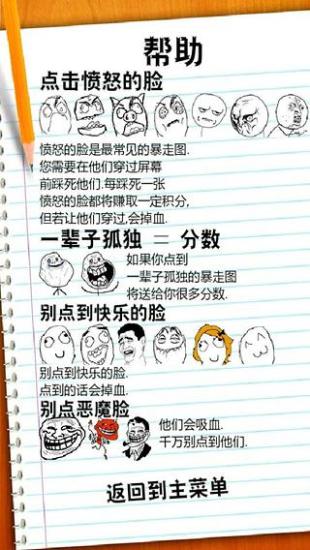 帮助
点击愤怒的脸
愤怒的脸是最常见的暴走图.
您需要在他们穿过屏幕
前踩死他们.每踩死一张
愤怒的脸都将赚取一定积分,
但若让他们穿过,会掉血.
一辈子孤独 = 分数
如果你点到
一辈子孤独的暴走图
将送给你很多分数.
别点到快乐的脸
别点到快乐的脸.
点到的话会掉血.
别点恶魔脸
他们会吸血.
千万别点到他们.
返回到主菜单